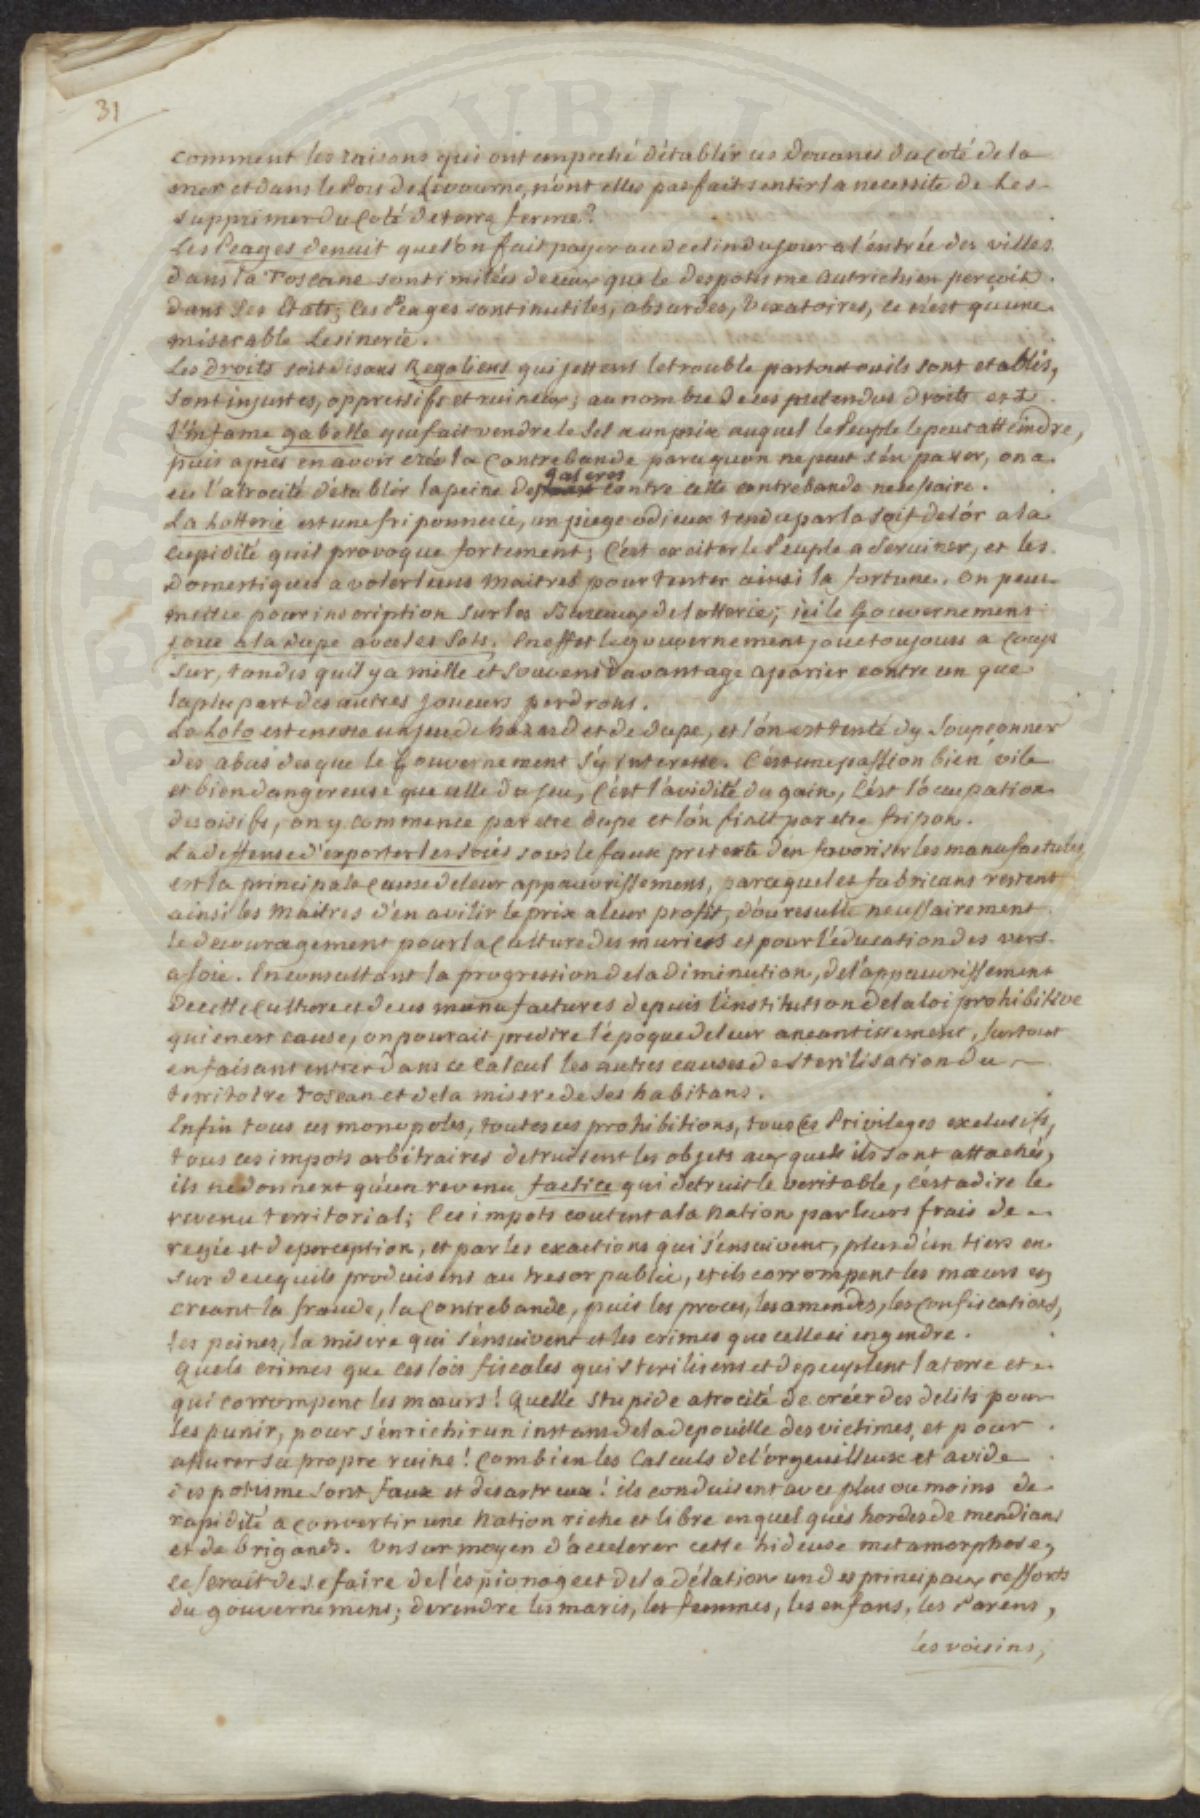 31
comment les raisons qui ont empeché d'établir ces Douanes du Coté de la
mer et dans le Port de Livourne, n'ont elles pas fait sentir la necessite de Les
Supprimer du Coté de terre ferme?
Les Peages de nuit que l'on fait payer au declin du jour a l'éntrée des villes
dans la Toscane sont imitées de ceux que le Despotisme autrichien perçoit
dans Ses Etats; Ces Peages sont inutiles, absurdes, Vexatoires, ce n'est qu'une
miserable Lesinerie.
Les Droits soit disans Regaliens qui jettent le trouble partout ou ils sont etablis,
Sont injustes, oppressifs et ruineux; au nombre de ces pretendus droits est
l'infame gabelle qui fait vendre le Sel a un prix auquel le Peuple le peut atteindre,
puis apres en avoir créé la Contrebande parcequ'on ne peut s'én passer, on a
eu l'atrocité d'établir la peine des galeres contre cette contrebande necessaire.
La Lotterie est une friponnerie, un piege odieux tendu par la Soif de lór a la
cupidité qu'il provoque fortement; C'est exciter le Peuple a Se ruiner, et les
Domestiques a voler leurs Maitres pour tenter ainsi la fortune. On peut
mettre pour inscription Sur les Bureaux de lotterie; ici le Gouvernement
joue a la dupe avec les Sots. En effet le gouvernement joue toujours a Coup
Sur, tandis qu'il y a mille et Souvent davantage a parier contre un que
la plupart des autres joueurs perdront.
Le Loto est encore un jeu de hazard et de dupe, et lón est tenté d'y Soupçonner
des abus des que le Gouvernement S'y interesse. C'est une passion bien vile
et bien dangereuse que celle du jeu, C'est l'avidité du gain, C'est lóccupation
des oisifs, on y commence par etre dupe et lón finit par etre fripon.
La deffense d'exporter les soies sous le faux pretexte d'en favoriser les manufactures,
est la principale Cause de leur appauvrissement, parceque les fabricans restent
ainsi les Maitres d'en avilir le prix a leur profit, dóu resulte necessairement
le decouragement pour la Culture des muriers et pour l'éducation des vers
a soie. En consultant la progression de la diminution, de l'appauvrissement
de cette Culture et de ces manufactures depuis l'institution de la loi prohibitive
qui en est cause, on pourait predire l'époque de leur aneantissement, surtout
en faisant entrer dans ce Calcul les autres causes de Sterilisation du
territoire toscan et de la misere de Ses habitans.
Enfin tous ces monopoles, toutes ces prohibitions, tous ces Privileges exclusifs,
tous ces impots arbitraires detruisent les objets aux quels ils Sont attachés,
ils ne donnent qu'un revenu factice qui detruit le veritable, c'est a dire le
revenu territorial; Ces impots coutent a la Nation par leurs frais de
regie et de perception, et par les exactions qui s'énsuivent, plus d'un tiers en
sur de ce quils produisent au tresor public, et ils corrompent les mœurs en
creant la fraude, la Contrebande, puis les proces, les amendes, les confiscations,
les peines, la misere qui s'énsuivent et les crimes que celleci engendre.
Quels crimes que ces lois fiscales qui Sterilisent et depeuplent la terre et
qui corrompent les mœurs! Quelle Stupide atrocité de créer des delits pour
les punir, pour s'énrichir un instant de la depouille des victimes et pour
assurer sa propre ruine! Combien les Calculs de l'orgueilleux et avide
despotisme Sont faux et desastreux! ils conduisent avec plus ou moins de
rapidité a convertir une Nation riche et libre en quelques hordes de mendians
et de brigands. Un Sur moyen d'accelerer cette hideuse metamorphose,
ce Serait de se faire de l'éspionage et de la délation un des principaux ressorts
du gouvernement; de rendre les maris, les femmes, les enfans, les Parens,
les voisins,